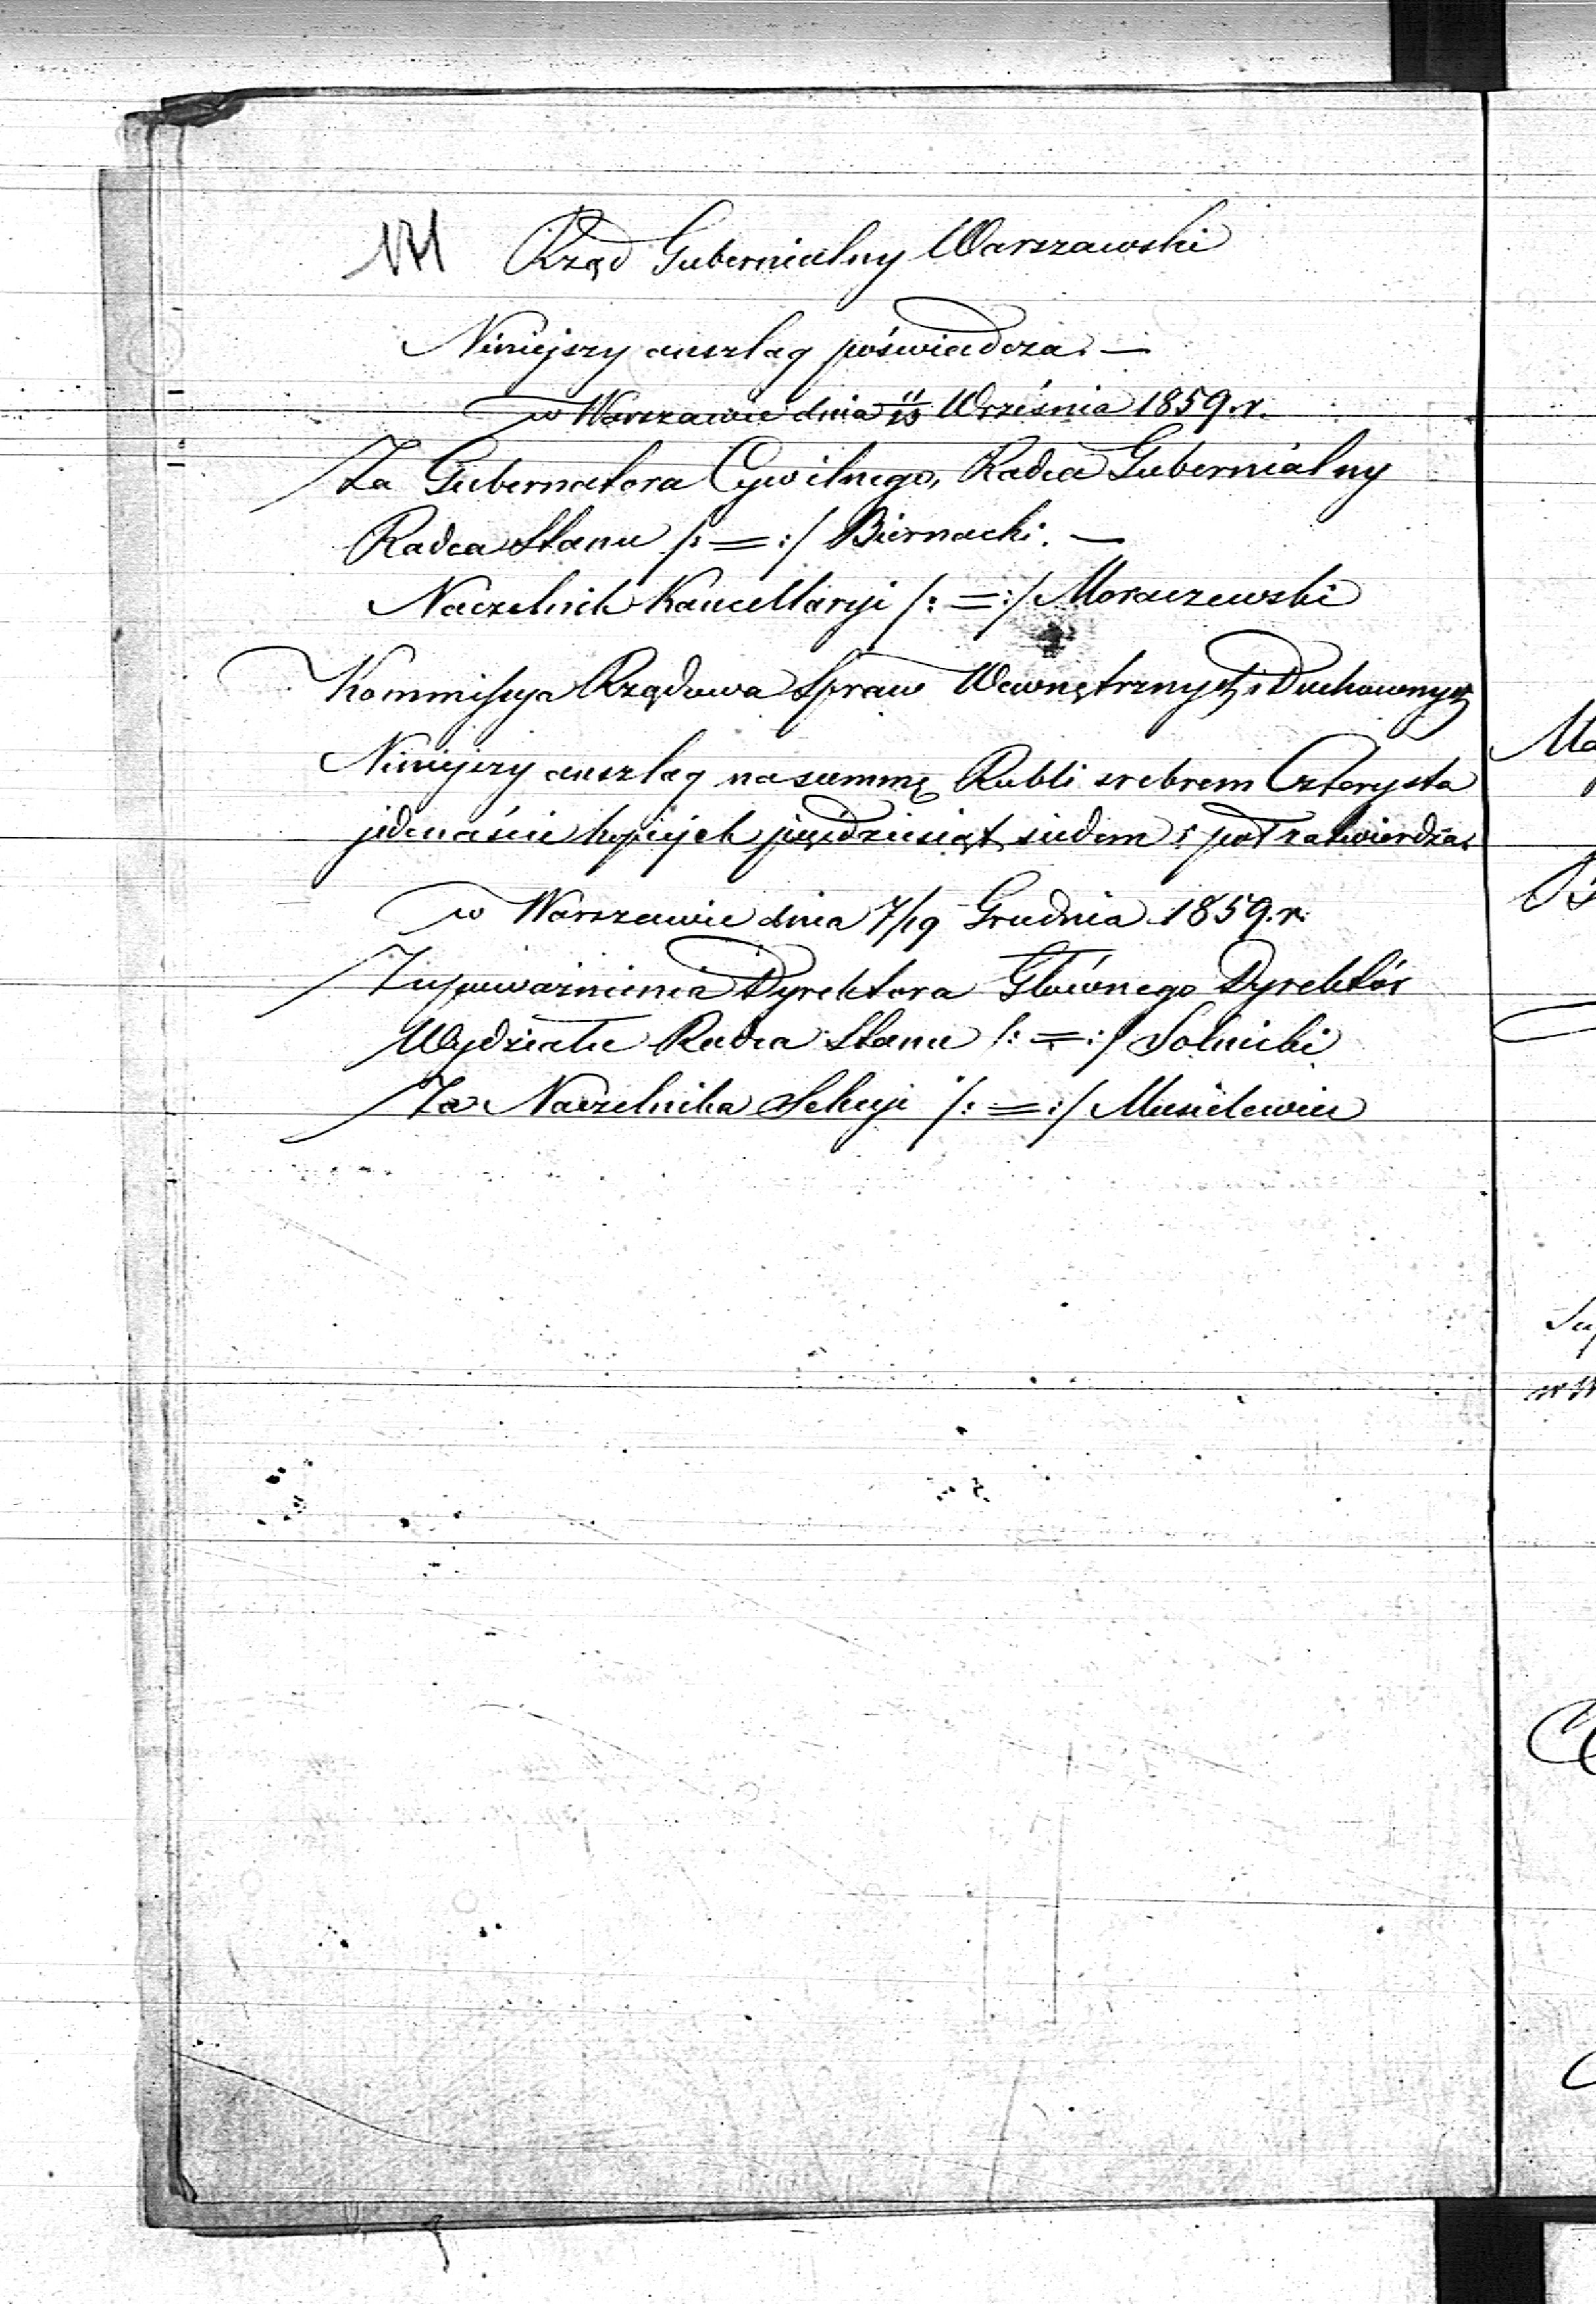 171 Rząd Gubernialny Warszawski
Niniejszy anszlag poświadcza. —
w Warszawie dnia 11/23 Września 1859. r.
Za Gubernatora Cywilnego, Radca Gubernialny
Radca Stanu /: = :/ Biernacki. —
Naczelnik Kancellaryi /: = :/ Moraczewski
Kommissya Rządowa Spraw Wewnętrznych i Duchownych
Niniejszy anszlag na summę Rubli srebrem Czterysta
jedenaście kopiejek pięćdziesiąt siedem i pół zatwierdza.
w Warszawie dnia 7/19 Grudnia 1859. r.
Z upoważnienia Dyrektora Głównego Dyrektór
Wydziału Radca Stanu /: = :/ Solnicki
Za Naczelnika Sekcyi /: = :/ Musielewicz